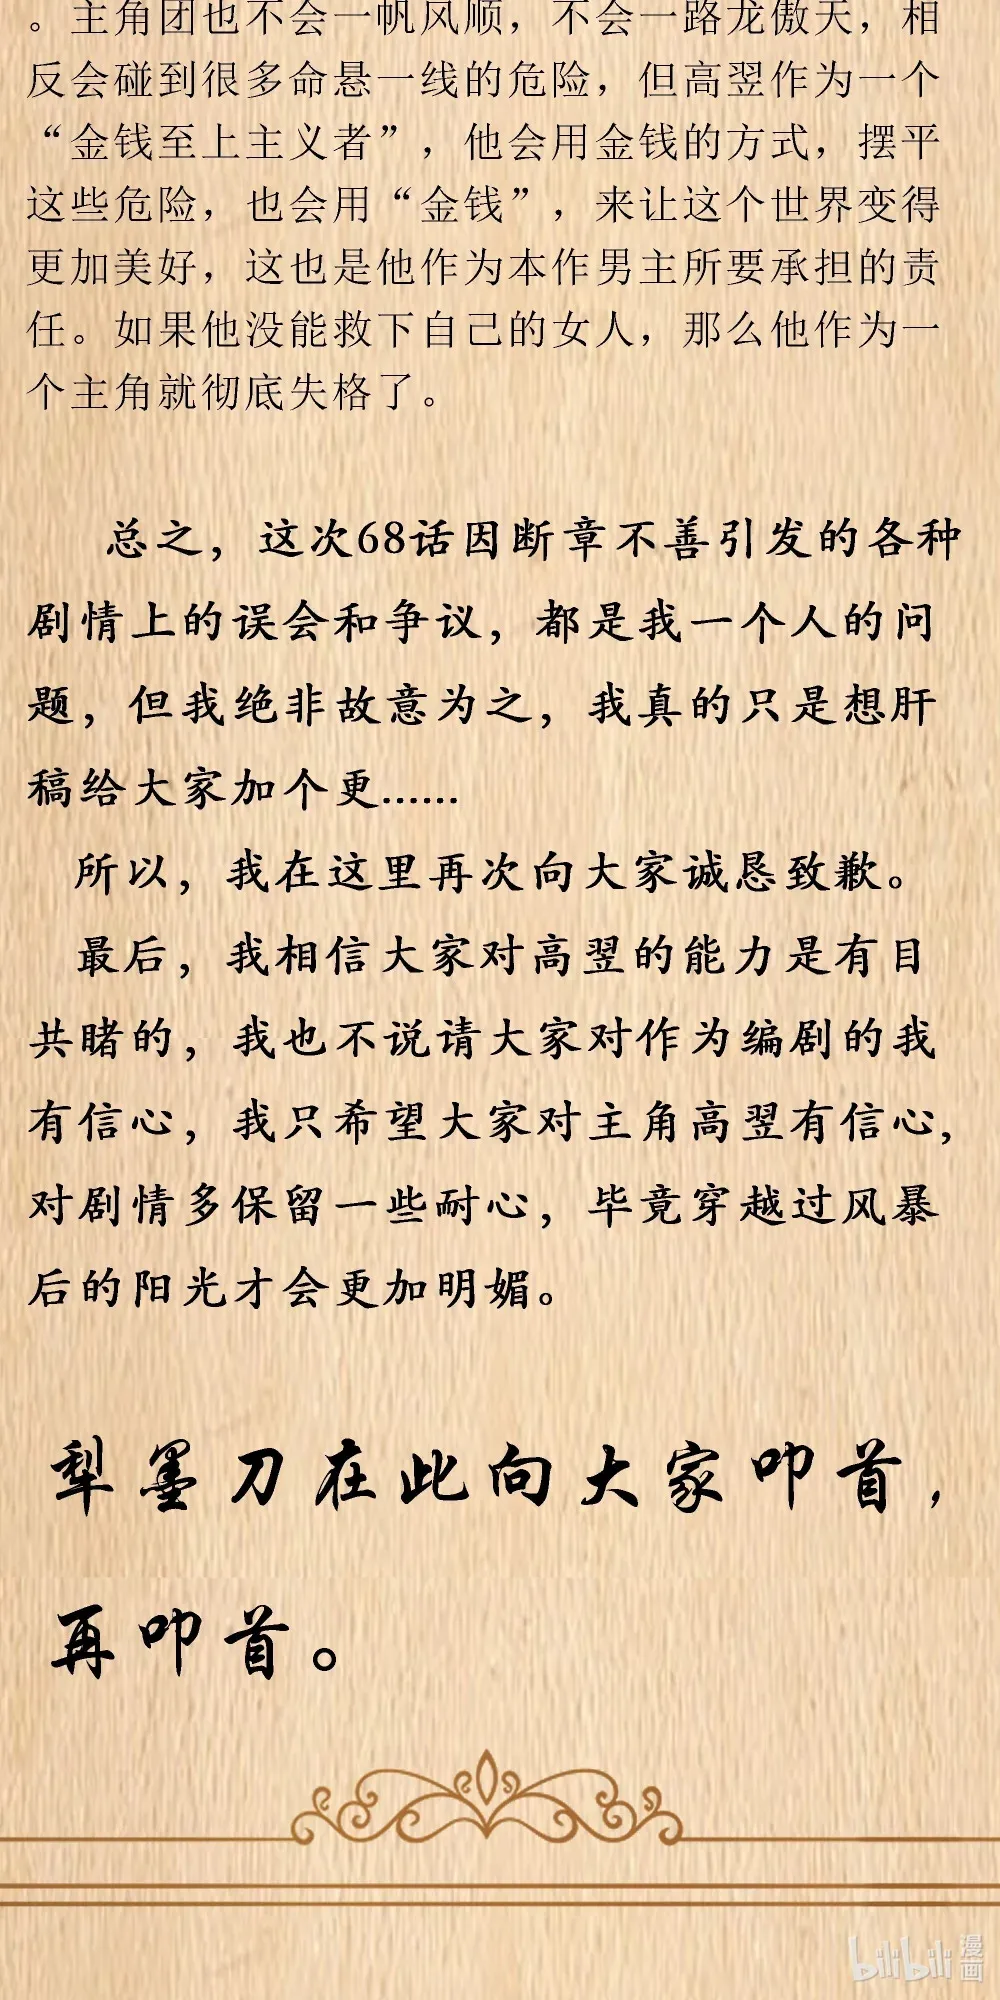 。主角团也不会一帆风顺，不会一路龙傲天，相
反会碰到很多命悬一线的危险，但高翌作为一个
“金钱至上主义者”，他会用金钱的方式，摆平
这些危险，也会用“金钱”，来让这个世界变得
更加美好，这也是他作为本作男主所要承担的责
任。如果他没能救下自己的女人，那么他作为一
个主角就彻底失格了。
总之，这次68话因断章不善引发的各种
剧情上的误会和争议，都是我一个人的问
题，但我绝非故意为之，我真的只是想肝
稿给大家加个更......
所以，我在这里再次向大家诚恳致歉。
最后，我相信大家对高翌的能力是有目
共睹的，我也不说请大家对作为编剧的我
有信心，我只希望大家对主角高翌有信心，
对剧情多保留一些耐心，毕竟穿越过风暴
后的阳光才会更加明媚。
犁墨刀在此向大家叩首，
再叩首。
bilibili 漫画